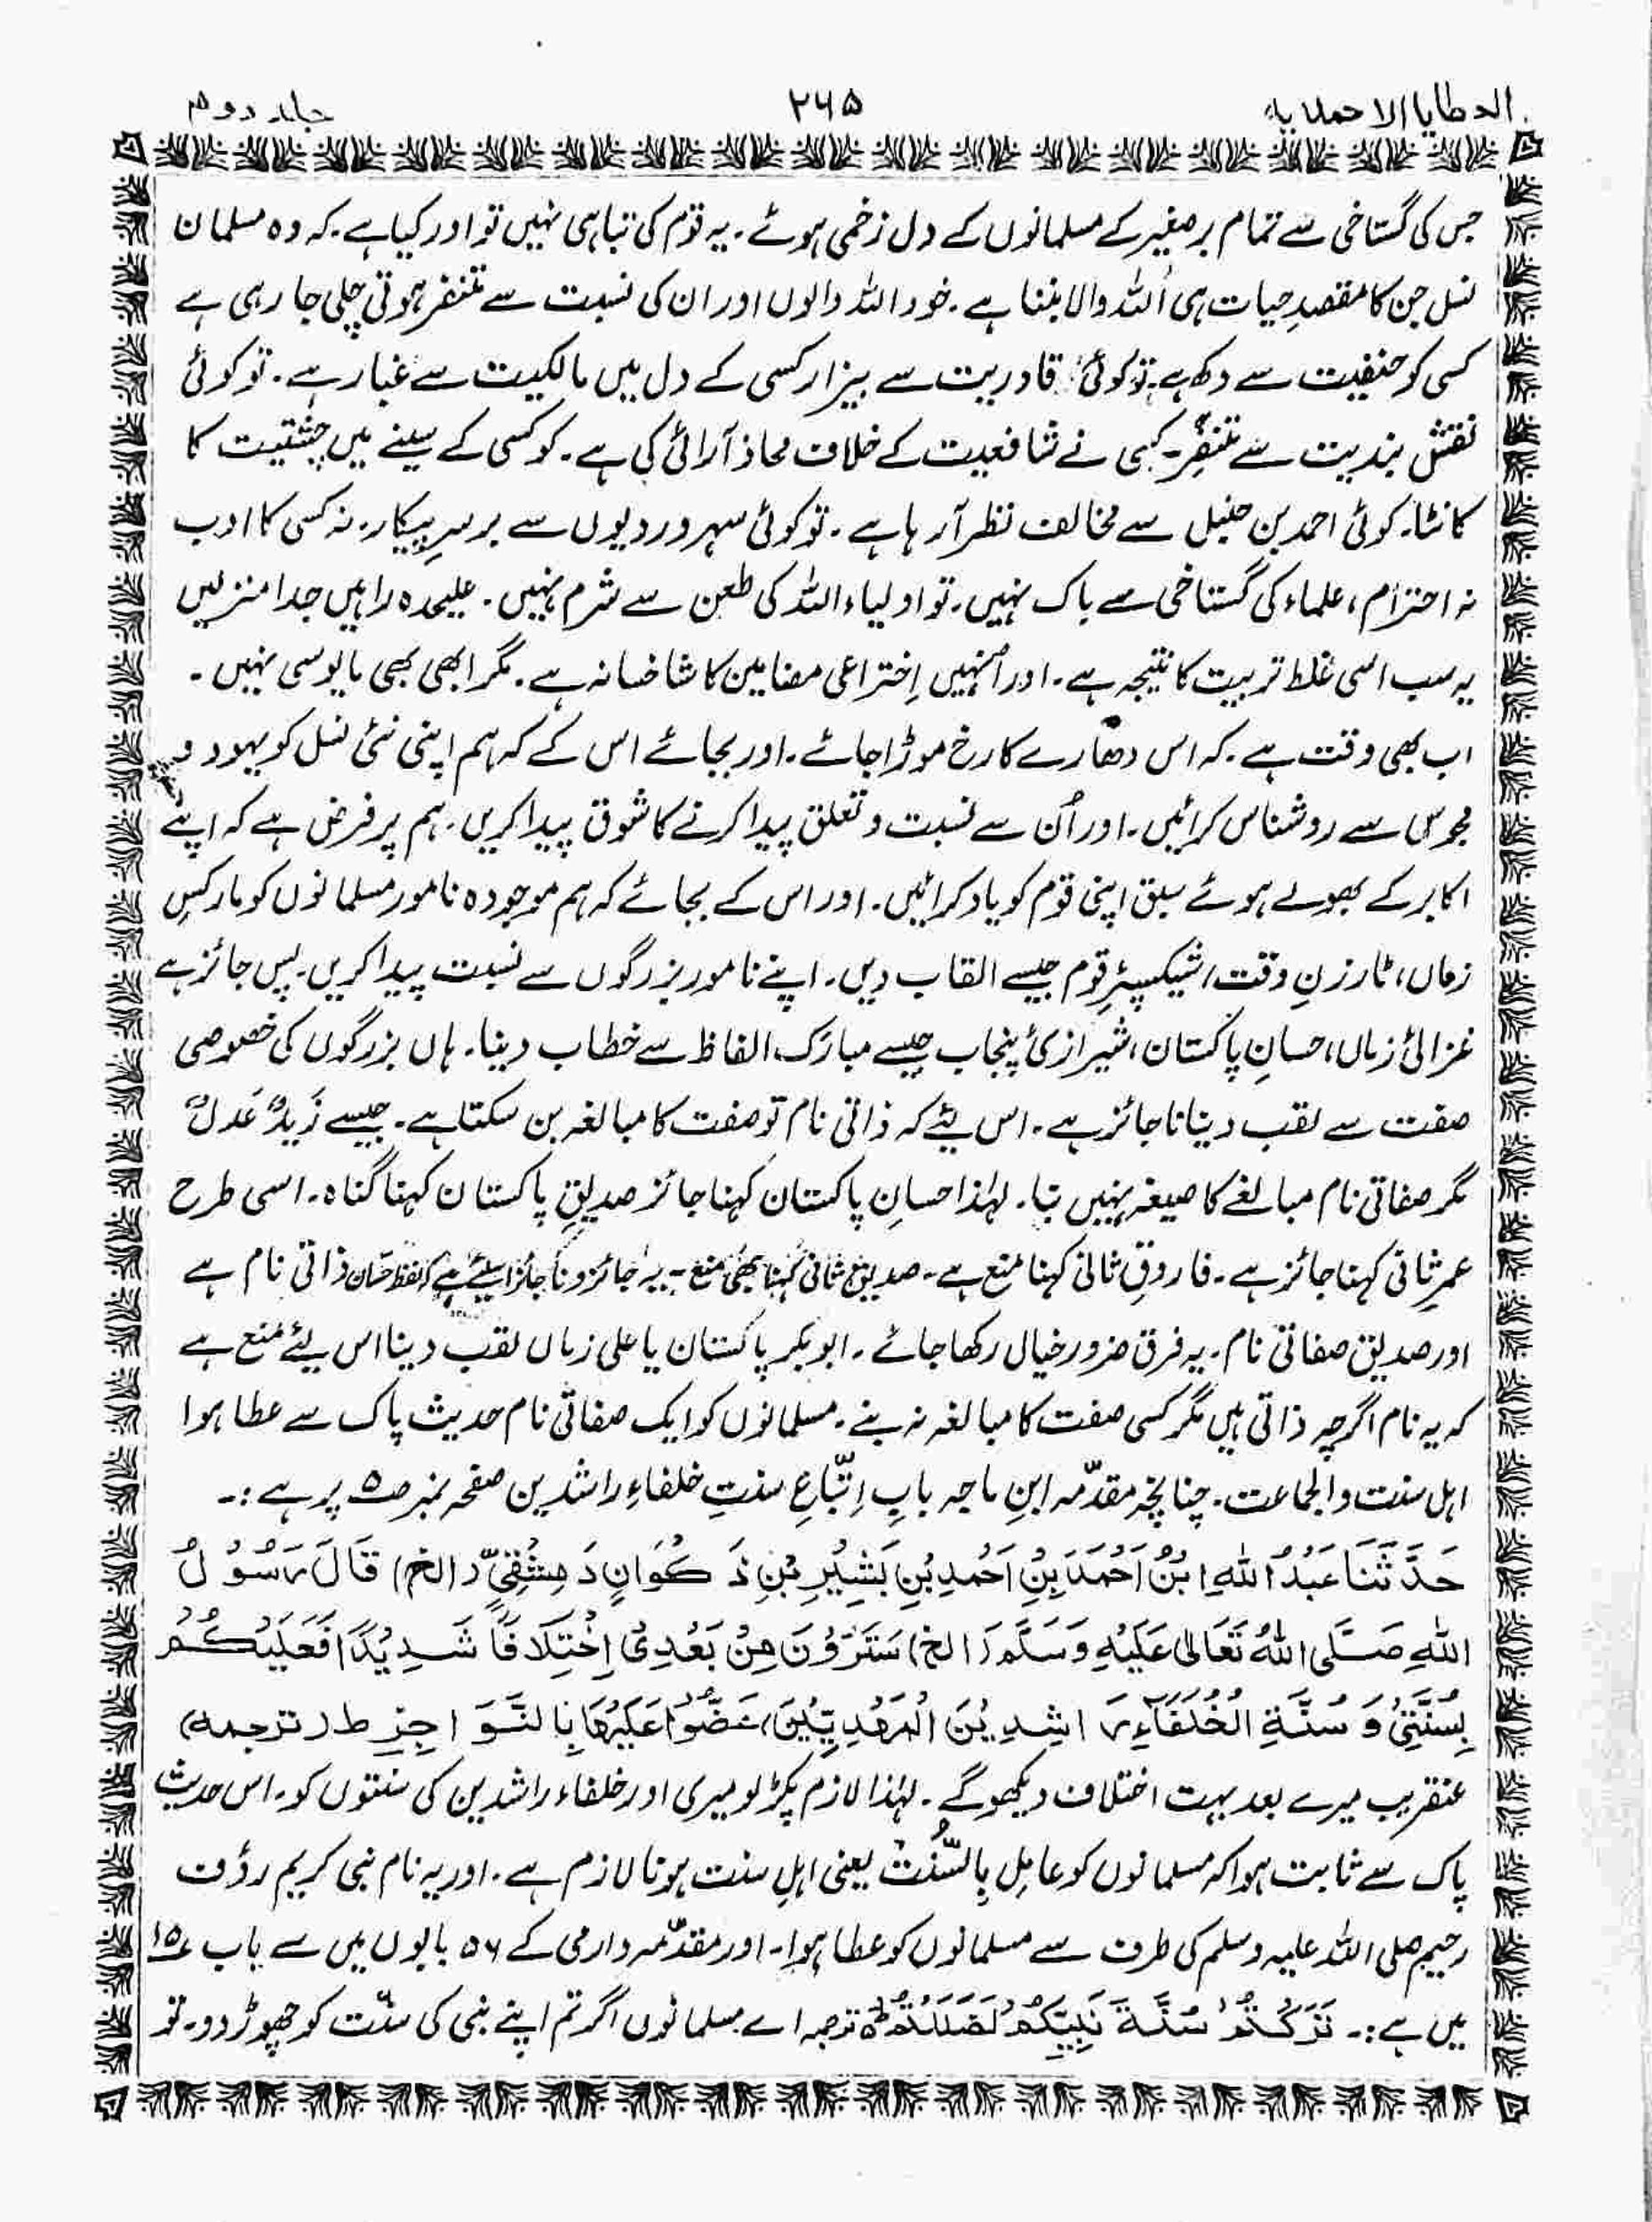 العطایا الاحمدیہ ۲۶۵ جلد دوم
جس کی گستاخی سے تمام برصغیر کے مسلمانوں کے دل زخمی ہوئے۔ یہ قوم کی تباہی نہیں تو اور کیا ہے۔ کہ وہ مسلمان
نسل جن کا مقصدِ حیات ہی اُللہ والا بننا ہے۔ خود اللہ والوں اور ان کی نسبت سے متنفر ہوتی چلی جا رہی ہے
کسی کو حنفیت سے دکھ ہے۔ تو کوئی قادریت سے بیزار کسی کے دل میں مالکیت سے غبار ہے۔ تو کوئی
نقش بندیت سے متنفِّر۔ کسی نے شافعیت کے خلاف محاذ آرائی کی ہے۔ کو کسی کے سینے میں چشتیت کا
کانٹا۔ کوئی احمد بن حنبل سے مخالف نظر آ رہا ہے۔ تو کوئی سہروردیوں سے برسرِ پیکار۔ نہ کسی کا ادب
نہ احترام، علماء کی گستاخی سے باک نہیں۔ تو اولیاء اللہ کی طعن سے شرم نہیں۔ علیحدہ راہیں جدا منزلیں
یہ سب اسی غلط تربیت کا نتیجہ ہے۔ اور اُنہیں اِختراعی مضامین کا شاخسانہ ہے۔ مگر ابھی بھی مایوسی نہیں۔
اب بھی وقت ہے۔ کہ اس دھارے کا رخ موڑا جائے۔ اور بجائے اس کے کہ ہم اپنی نئی نسل کو یہود و
مجوس سے روشناس کرائیں۔ اور اُن سے نسبت و تعلق پیدا کرنے کا شوق پیدا کریں۔ ہم پر فرض ہے کہ اپنے
اکابر کے بھولے ہوئے سبق اپنی قوم کو یاد کرائیں۔ اور اس کے بجائے کہ ہم موجودہ نامور مسلمانوں کو مارکسِ
زماں، ٹارزنِ وقت، شیکسپئرِ قوم جیسے القاب دیں۔ اپنے نامور بزرگوں سے نسبت پیدا کریں۔ پس جائز ہے
غزالئ زماں، حسانِ پاکستان، شیرازئ پنجاب جیسے مبارک الفاظ سے خطاب دینا۔ ہاں بزرگوں کی خصوصی
صفت سے لقب دینا ناجائز ہے۔ اس لیئے کہ ذاتی نام تو صفت کا مبالغہ بن سکتا ہے۔ جیسے زَیدٌ عَدلٌ
مگر صفاتی نام مبالغے کا صیغہ نہیں بنا۔ لہٰذا حسانِ پاکستان کہنا جائز صدیقِ پاکستان کہنا گناہ۔ اسی طرح
عمرِ ثانی کہنا جائز ہے۔ فاروقِ ثانی کہنا منع ہے۔ صدیق ثانی کہنا بھی منع۔ یہ جائز و ناجائز اسلئے ہے کہ لفظ حسّان ذاتی نام ہے
اور صدیق صفاتی نام۔ یہ فرق ضرور خیال رکھا جائے۔ ابوبکر پاکستان یا علی زماں لقب دینا اس لیئے منع ہے
کہ یہ نام اگرچہ ذاتی ہیں مگر کسی صفت کا مبالغہ نہ بنے۔ مسلمانوں کو ایک صفاتی نام حدیث پاک سے عطا ہوا
اہل سنت والجماعت۔ چنانچہ مقدّمہ ابنِ ماجہ بابِ اِتّباعِ سنتِ خلفاءِ راشدین صفحہ نمبر ص۵ پر ہے:۔
حَدَّثَنَا عَبْدُ اللّٰهِ ابْنُ اَحْمَدَ بِنُ اَحْمَدِ بْنِ بَشِیْرِ بْنِ ذَکْوَانٍ دَمِشْقِیِّ (الخ) قَالَ رَسُوْلُ
اللّٰهِ صَلَّی اللّٰهُ تَعَالیٰ عَلَیْهِ وَسَلَّمَ (الخ) سَتَرَوْنَ مِنْ بَعْدِیْ اِخْتِلَافًا شَدِیْدًا فَعَلَیْکُمْ
بِسُنَّتِیْ وَ سُنَّةِ الْخُلَفَاءِ رَاشِدِیْنَ الْمَهْدِیِّیْنَ، عَضُّوْا عَلَیْهَا بِالنَّوَاجِزِ ط (ترجمہ)
عنقریب میرے بعد بہت اختلاف دیکھو گے۔ لہٰذا لازم پکڑ لو میری اور خلفاء راشدین کی سنتوں کو۔ اس حدیث
پاک سے ثابت ہوا کہ مسلمانوں کو عامِل بِالسُّنّت یعنی اہلِ سنت ہونا لازم ہے۔ اور یہ نام نبی کریم رؤف
رحیم صلی اللہ علیہ وسلم کی طرف سے مسلمانوں کو عطا ہوا۔ اور مقدّمہ دارمی کے ۵۶ بابوں میں سے باب ۱۵
میں ہے:۔ تَرَکْتُمْ سُنَّةَ نَبِیِّکُمْ لَضَلَلْتُمْ ط ترجمہ اے مسلمانوں اگر تم اپنے نبی کی سنّت کو چھوڑ دو۔ تو